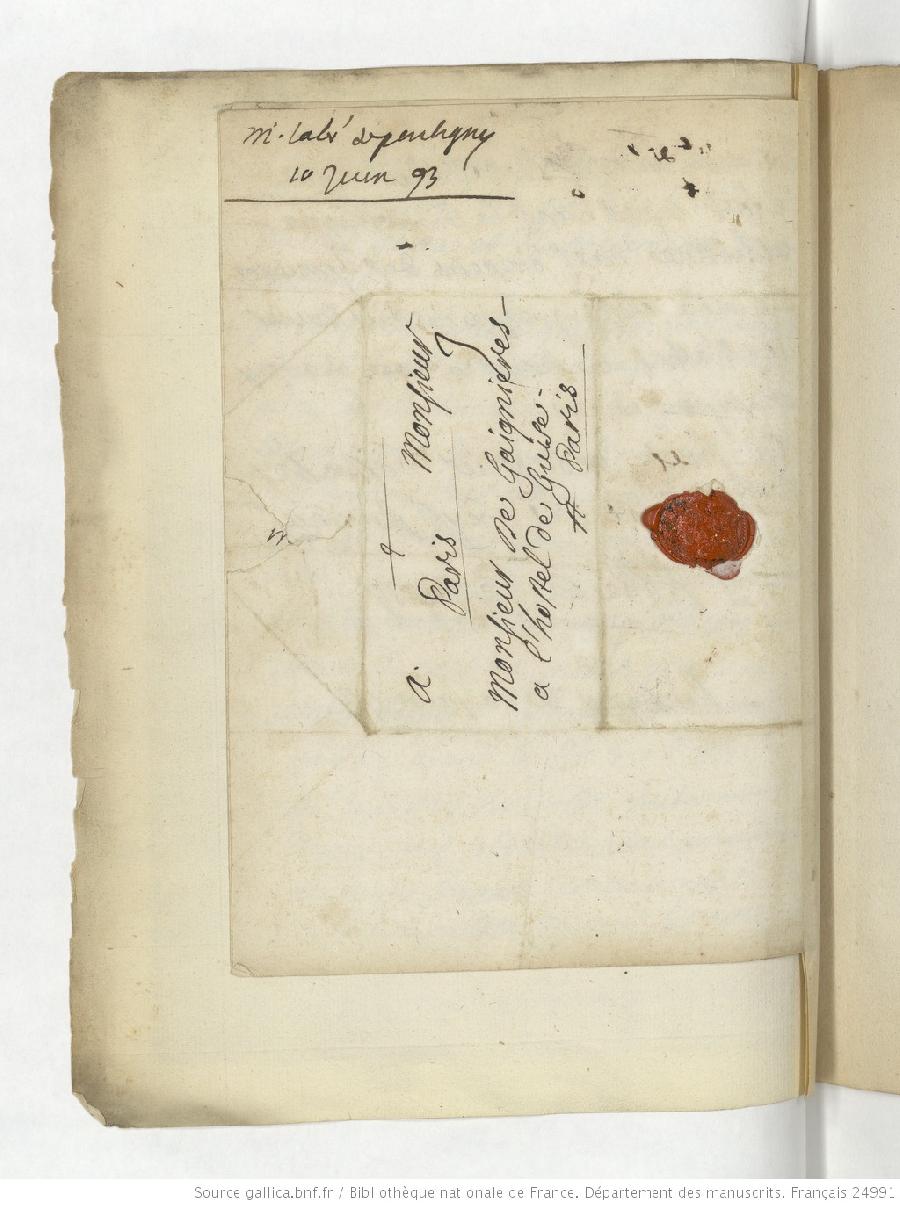 M. l'abé de pontigny
10 Juin 93
Monsieur
a Paris
Monsieur De Gaignieres
a l'hostel de Guise
A Paris
Source gallica.bnf.fr / Bibliothèque nationale de France. Département des manuscrits. Français 24991